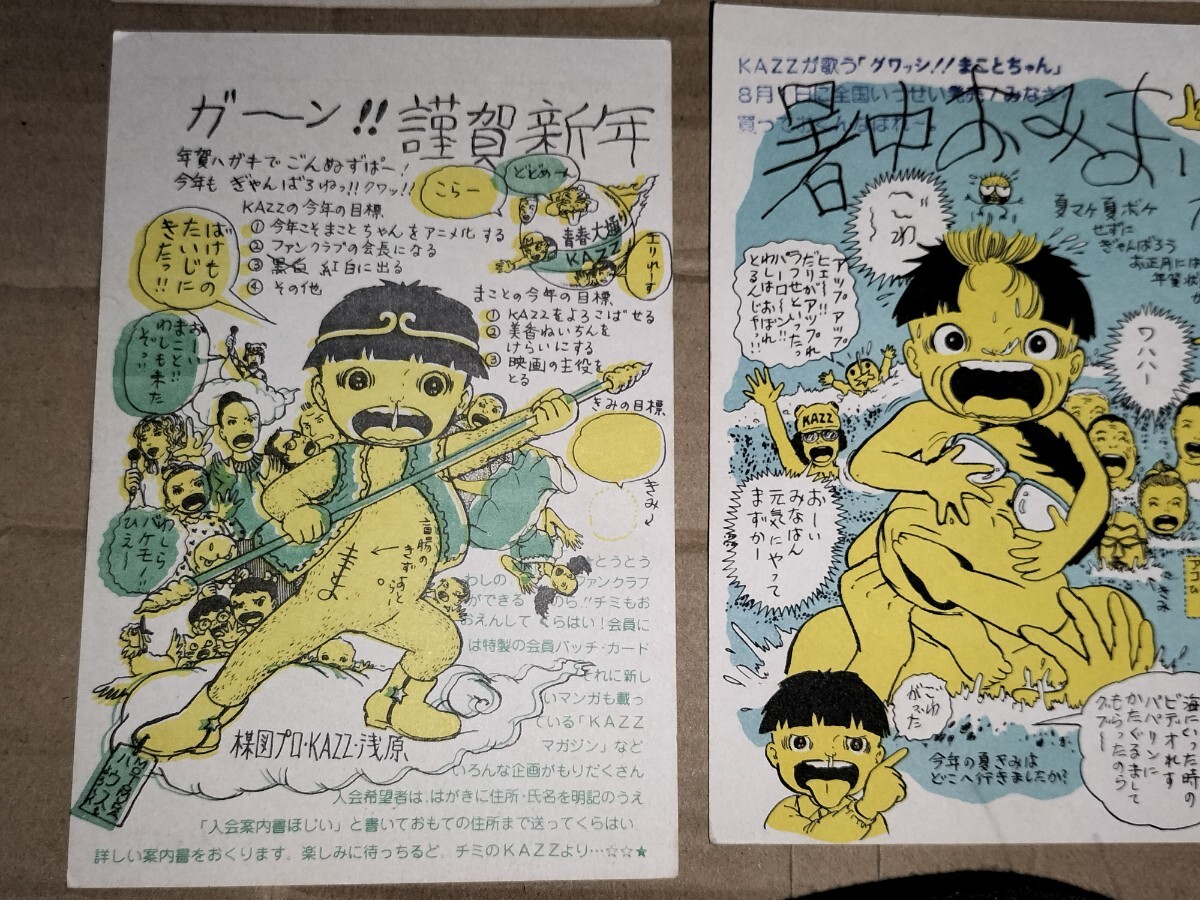 ガーン!! 謹賀新年
年賀ハガキでごんぬずばー!
今年も ぎゃんばろねっ!! クワッ!!
KAZZの今年の目標
① 今年こそまことちゃんをアニメ化する
② ファンクラブの会長になる
③ 紅白に出る
④ その他
こらー
どどめー
青春大通り
KAZZ
エリれす
ばけもの
たいじに
きたっ!!
おーい
まこと!!
わしも来た
ぞっ!!
まことの今年の目標
① KAZZをよろこばせる
② 美香ねいちんを
けらいにする
③ 映画の主役を
とる
きみの目標
きみ
わしら
バケモノ!!
ひえー
盲腸の
きずあと
らー
楳図プロ・KAZZ・浅原
とうとう
わしの ファンクラブ
ができる のら!!チミもお
おえんして くらはい!会員に
は特製の会員バッチ・カード
それに新し
いマンガも載っ
ている「KAZZ
マガジン」など
いろんな企画がもりだくさん
入会希望者は、はがきに住所・氏名を明記のうえ
「入会案内書ほじい」と書いておもての住所まで送ってくらはい
詳しい案内書をおくります。楽しみに待っちるど。チミのKAZZより…☆☆★
KAZZが歌う「グワッシ!!まことちゃん」
8月1日に全国いっせい発売!みなさ
買って
暑中おみま
ごわ
夏マケ夏ボケ
せずに
ぎゃんばろう
お正月には
年賀状
アップアップ
ヒェー!!
だりがアップれ
ラフせといったっ
バーロー!!
わしはおぼれ
とるんじやっ!!
ワハハー
KAZZ
おーい
みなはん
元気にやって
まずかー
きみ
ごわ
がった
今年の夏きみは
どこへ行きましたか?
海にいった時の
ビデオれす
パパリンに
かたぐるまして
もらったのら
グフー